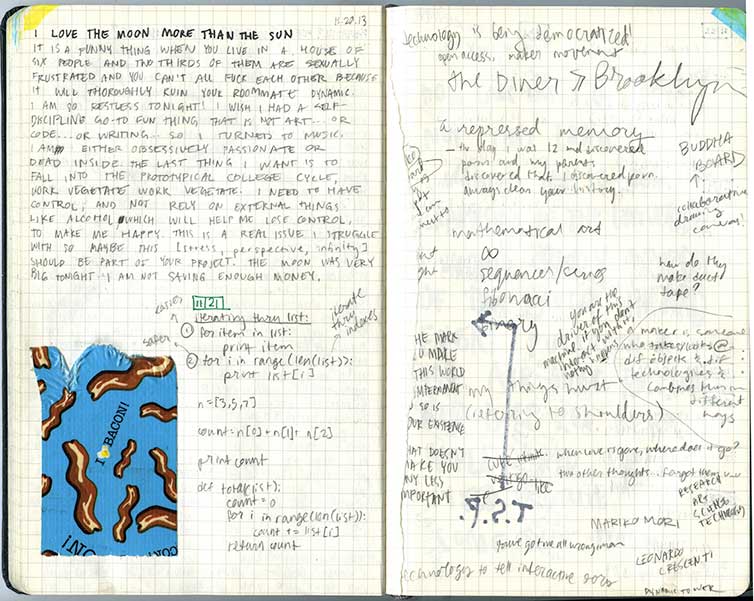 11.20.13
I LOVE THE MOON MORE THAN THE SUN
IT IS A FUNNY THING WHEN YOU LIVE IN A HOUSE OF
SIX PEOPLE AND TWO THIRDS OF THEM ARE SEXUALLY
FRUSTRATED AND YOU CAN'T ALL FUCK EACH OTHER BECAUSE
IT WILL THOROUGHLY RUIN YOUR ROOMMATE DYNAMIC.
I AM SO RESTLESS TONIGHT! I WISH I HAD A SELF-
DISCIPLING GO-TO FUN THING THAT IS NOT ART... OR
CODE... OR WRITING... SO I TURNED TO MUSIC.
I AM EITHER OBSESSIVELY PASSIONATE OR
DEAD INSIDE. THE LAST THING I WANT IS TO
FALL INTO THE PROTOTYPICAL COLLEGE CYCLE,
WORK VEGETATE WORK VEGETATE. I NEED TO HAVE
CONTROL, AND NOT RELY ON EXTERNAL THINGS
LIKE ALCOHOL WHICH WILL HELP ME LOSE CONTROL,
TO MAKE ME HAPPY. THIS IS A REAL ISSUE I STRUGGLE
WITH SO MAYBE THIS [stress, perspective, infinity]
SHOULD BE PART OF YOUR PROJECT. THE MOON WAS VERY
BIG TONIGHT. I AM NOT SAVING ENOUGH MONEY.
11/21
easier
iterating thru list:
iterate
thru
indexes
① for item in list:
print item
safer
② for i in range(len(list)):
print list[i]
n=[3,5,7]
count=n[0]+n[1]+n[2]
print count
def total(list):
count = 0
for i in range(len(list)):
count += list[i]
return count
I BACON!
technology is being democratized!
open access, maker movement
the Diner → Brooklyn
a repressed memory
— the day I was 12 and discovered
porn and my parents
discovered that I discovered porn.
always clean your history.
BUDDHA
BOARD
↑
collaborative
drawing
cameras!
mathematical art
∞
sequences/series
fibonacci
binary
how do they
make duct
tape?
you are the
driver of this
machine. if you don't
interact with it,
nothing happens
a maker is someone
who takes/looks @
dif objects & dif
technologies &
combines them in
different
ways
HE MARK
U MAKE
THIS WORLD
IMPERMANENT
SO IS
OUR EXISTENCE
HAT DOESN'T
MAKE YOU
ANY LESS
IMPORTANT
my things hurt
(referring to shoulders)
when love is gone, where does it go?
two other thoughts... forgot them
T.S.P.
RESEARCH
ART
SCIENCE
TECHNOLOGY
MARIKO MORI
you've got me all wrong man
LEONARDO
CRESCENTI
technology to tell interactive
DYNAMIC TOWER